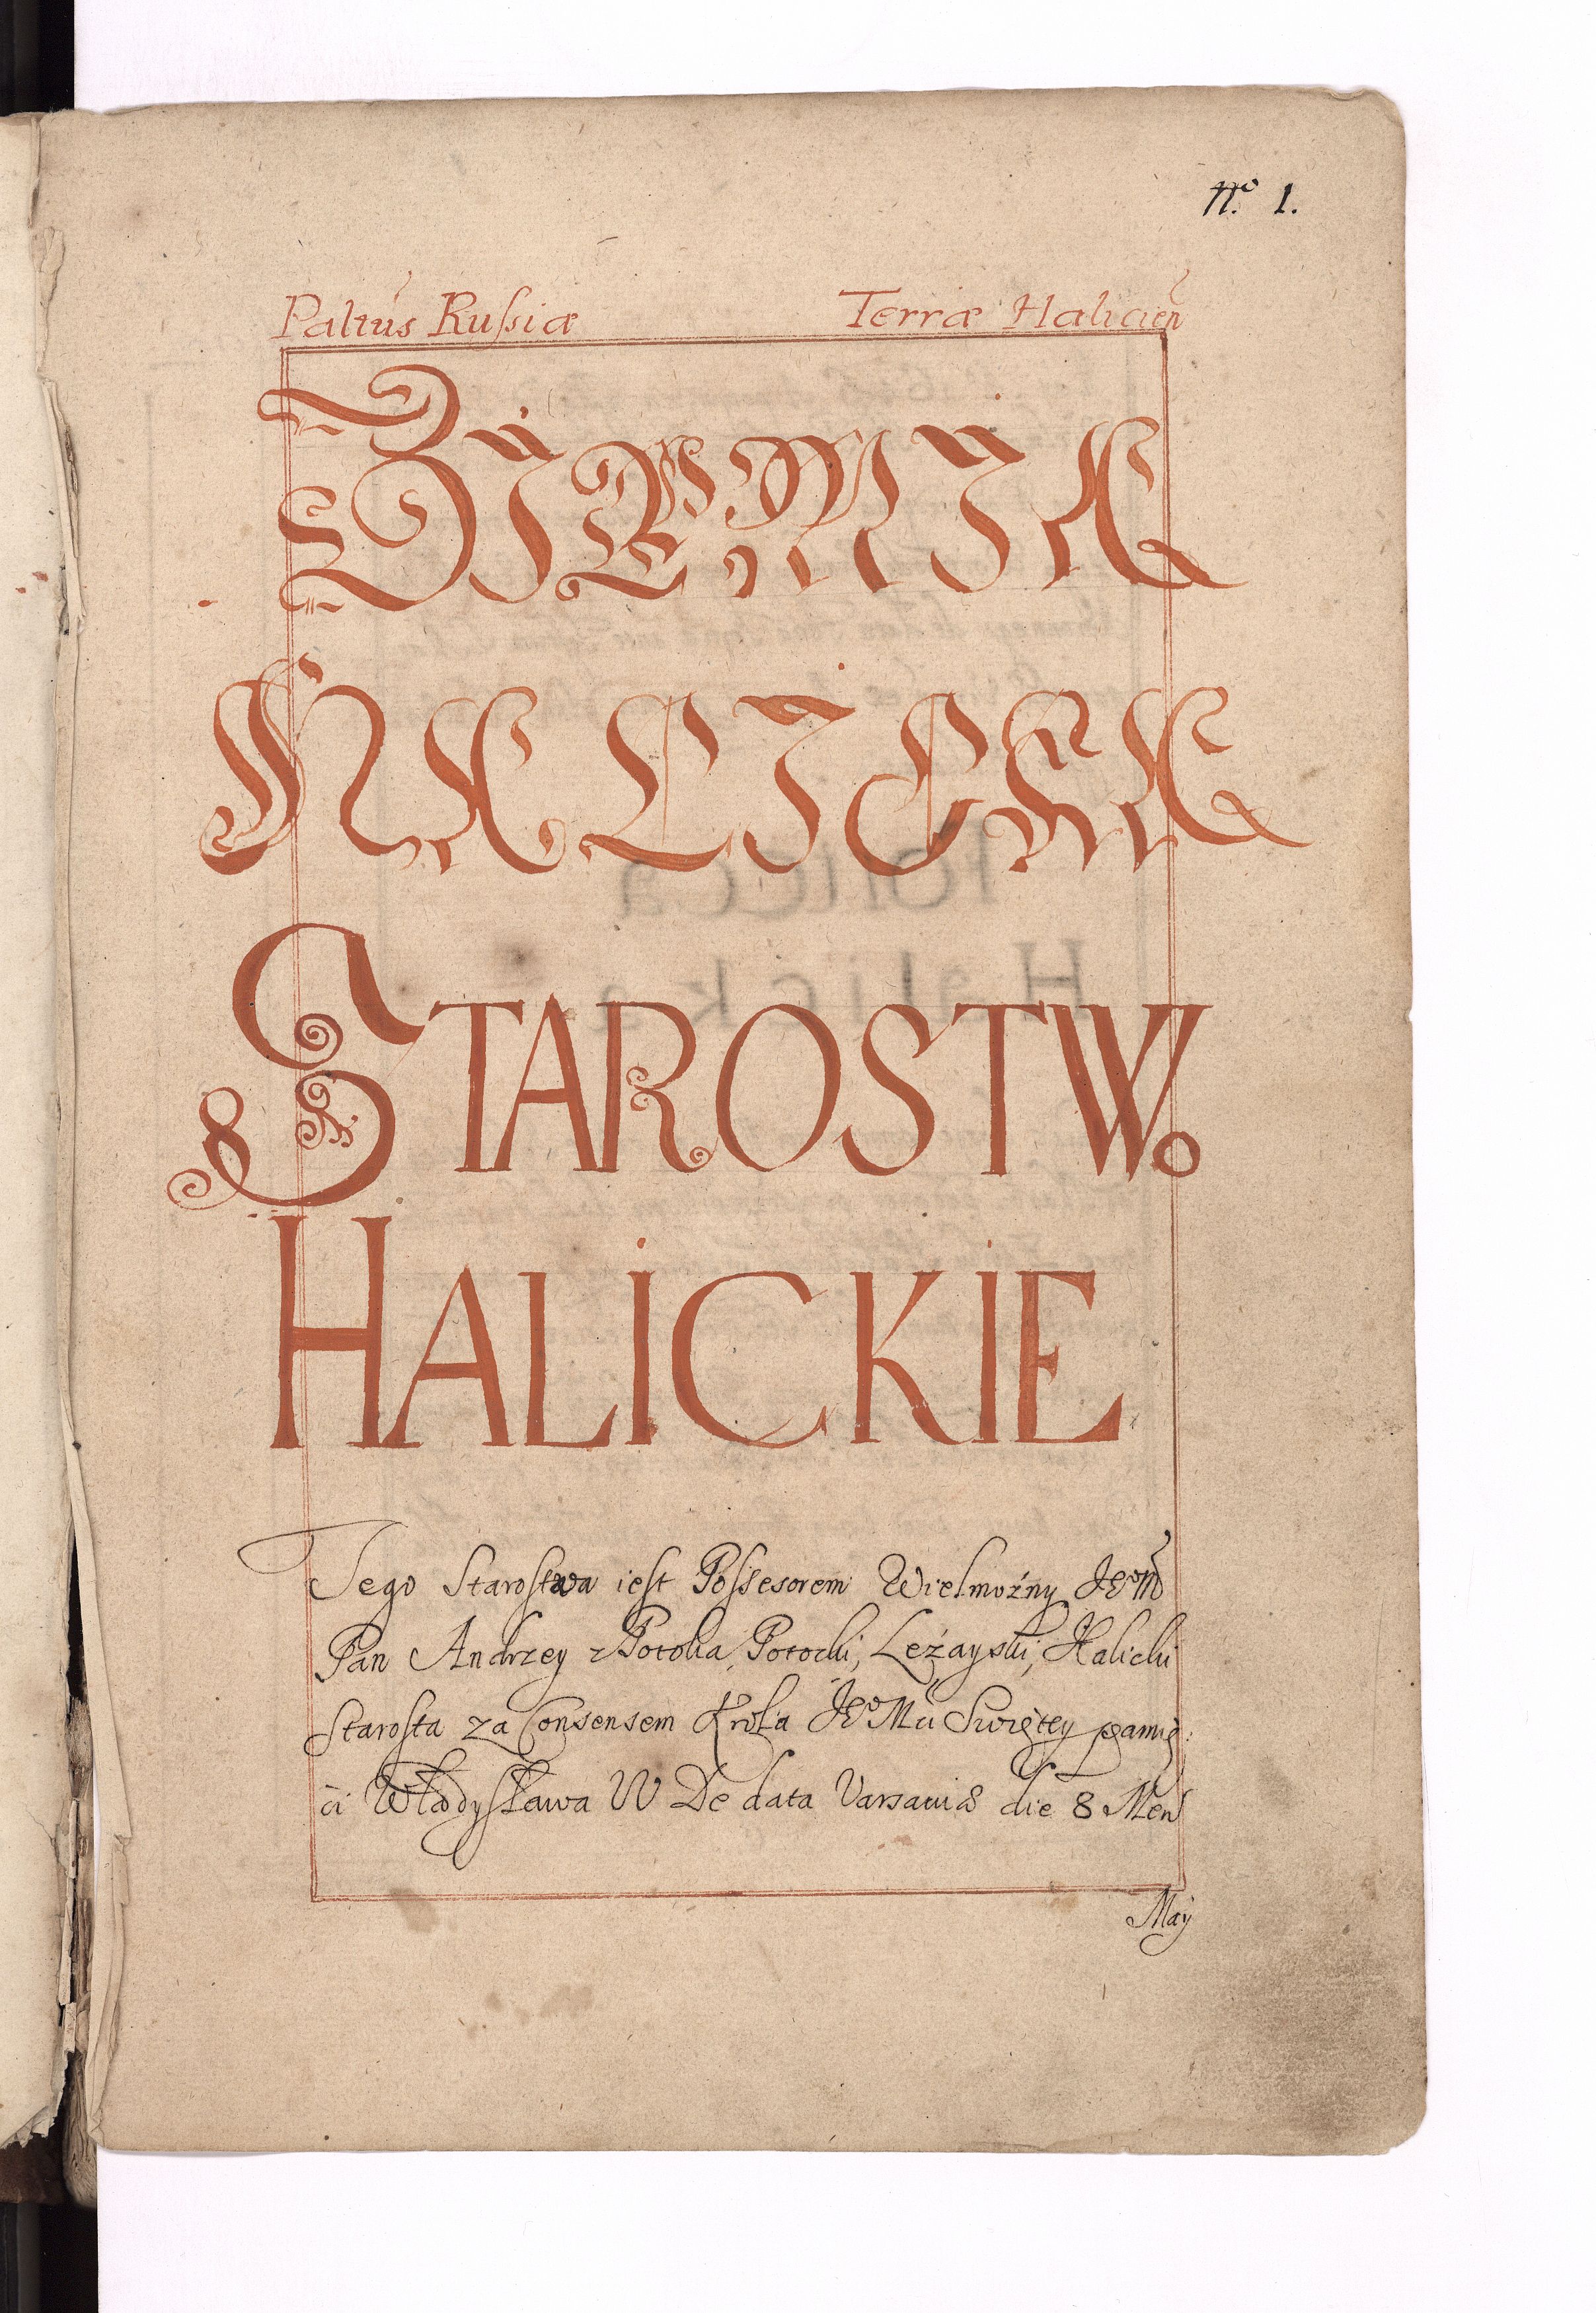 No. 1.
Paltus Russiæ Terræ Halicien
ZIEMIA
HALICKA
STAROSTWo
HALICKIE
Tego Starostwa iest Possesorem Wielmożny JEoM
Pan Andrzey z Potoka, Potocki, Leżayski, Halicki
Starosta za Consensem Krola JEoMci Swiętey pamię
ci Władysława IV De data Varsaviæ die 8 Men
May